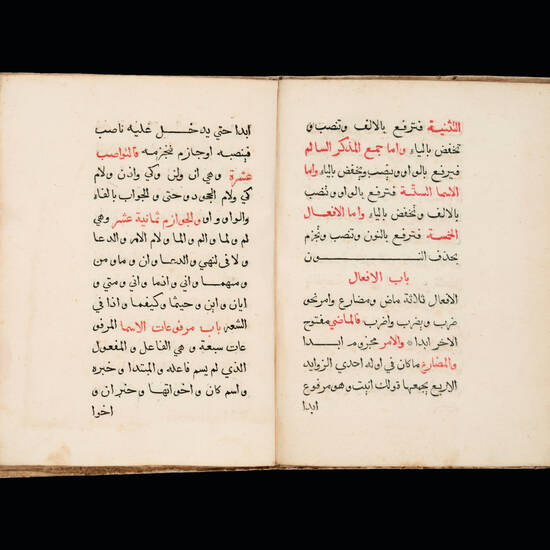 التثنية فترفع بالالف وتنصب و
تخفض بالياء واما جمع المذكر السالم
فيرفع بالواو وينصب ويخفض بالياء واما
الاسما الستة فترفع بالواو وتنصب
بالالف وتخفض بالياء واما الافعال
الخمسة فترفع بالنون وتنصب وتجزم
بحذف النـــــــون
باب الافعال
الافعال ثلاثة ماض ومضارع وامر نحو
ضرب ويضرب واضرب فالماضي مفتوح
الاخر ابدا * والامر مجزوم ابدا
والمضارع ماكان في اوله احدي الزوايد
الاربع يجمعها قولك انيت وهو مرفوع
ابدا
ابدا حتي يدخـــل عليه ناصب
فينصبه او جازم فيجزمه فالنواصب
عشرة وهي ان ولن وكي واذن ولام
كي ولام الجحود وحتى والجواب بالفاء
والواو واو والجوازم ثمانية عشر وهي
لم ولما والم والما ولام الامر والدعا
ولا في لنهي والدعا وان وما ومن
ومهما واني واذما واني ومتي و
ايان واين وحيثما وكيفما واذا في
الشعر باب مرفوعات الاسما المرفو
عات سبعة وهي الفاعل والمفعول
الذي لم يسم فاعله والمبتدا وخبره
واسم كان واخواتها وخبر ان و
اخوا